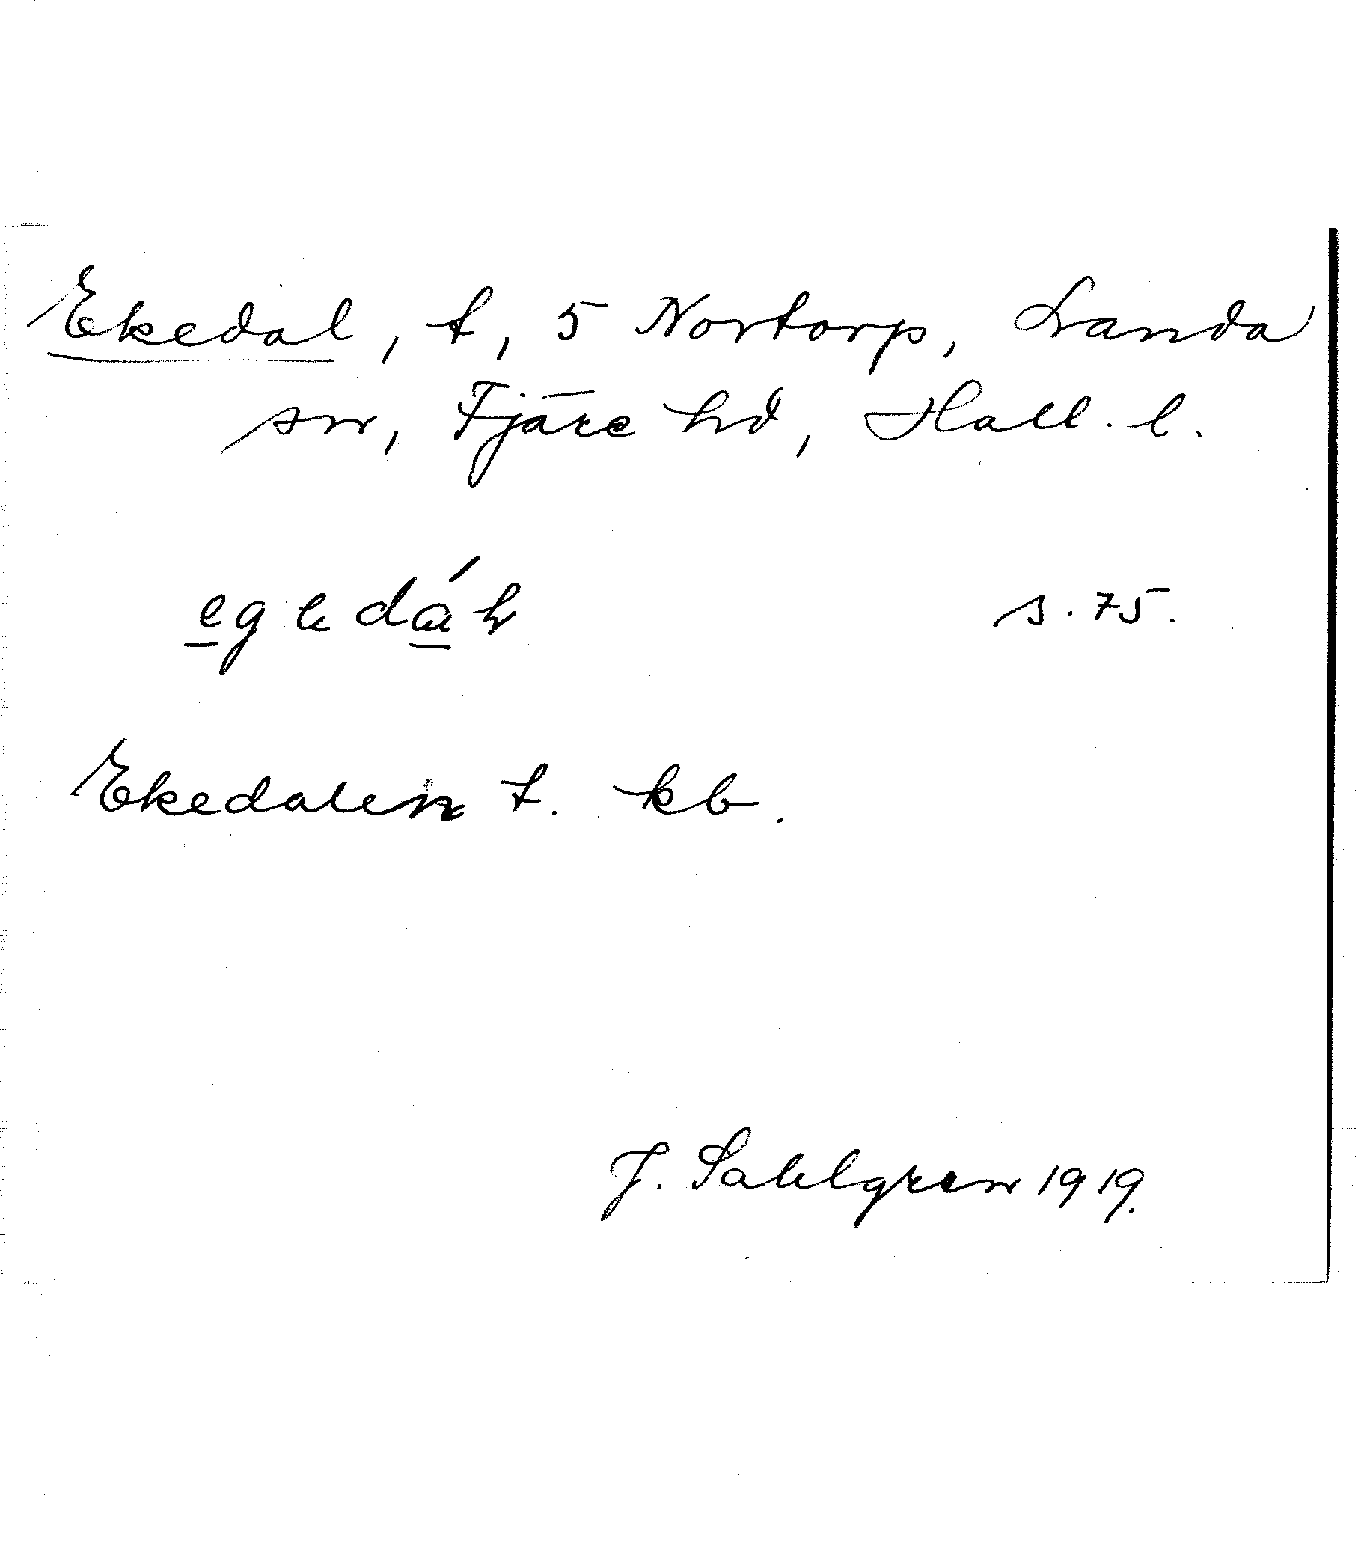 Ekedal, t, 5 Nortorp, Landa
sn, Fjäre hd, Hall. l.
s. 75.
Ekedalen t. kb.
J. Sahlgren 1919.